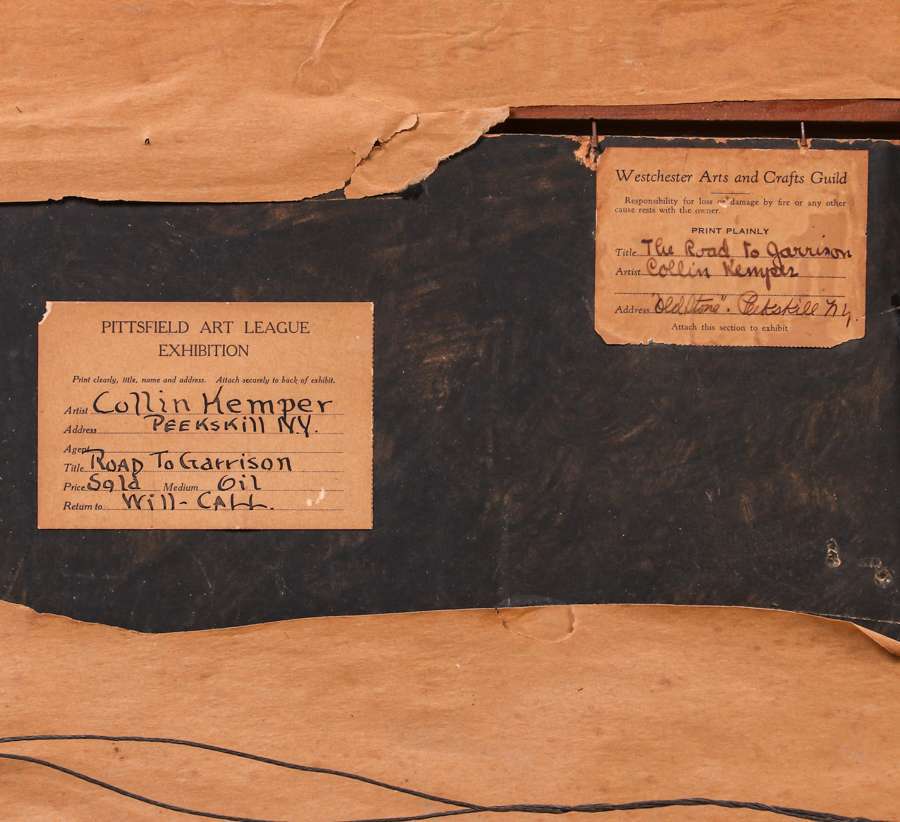 PITTSFIELD ART LEAGUE
EXHIBITION
Print clearly, title, name and address. Attach securely to back of exhibit.
Artist Collin Kemper
Address PEEKSKill N.Y.
Agent
Title ROAD To Garrison
Price Sold Medium Oil
Return to Will-CALL.
Westchester Arts and Crafts Guild
Responsibility for loss or damage by fire or any other
cause rests with the owner.
PRINT PLAINLY
Title The Road to Garrison
Artist Collin Kemper
Address "Old Stone". Peekskill N.Y.
Attach this section to exhibit